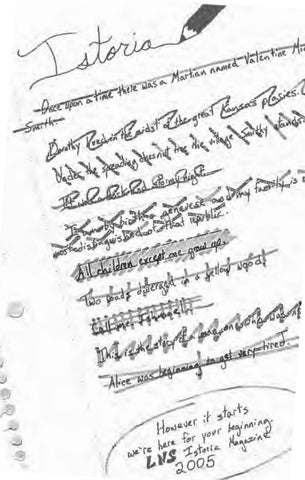 Istoria
Once upon a time there was a Martian named Valentine Mi
Smith.
Dorothy lived in the midst of the great Kansas prairies.
Under the spreading chestnut tree the village smithy stands
It was a dark and stormy night.
I am by birth a genevese and my family is
most distinguished of that republic.
All children except one grow up.
Two roads diverged in a yellow wood
Call me Ishmael.
This is the story of a
Alice was beginning to get very tired
However it starts
we're here for your beginning.
LHS Istoria Magazine
2005